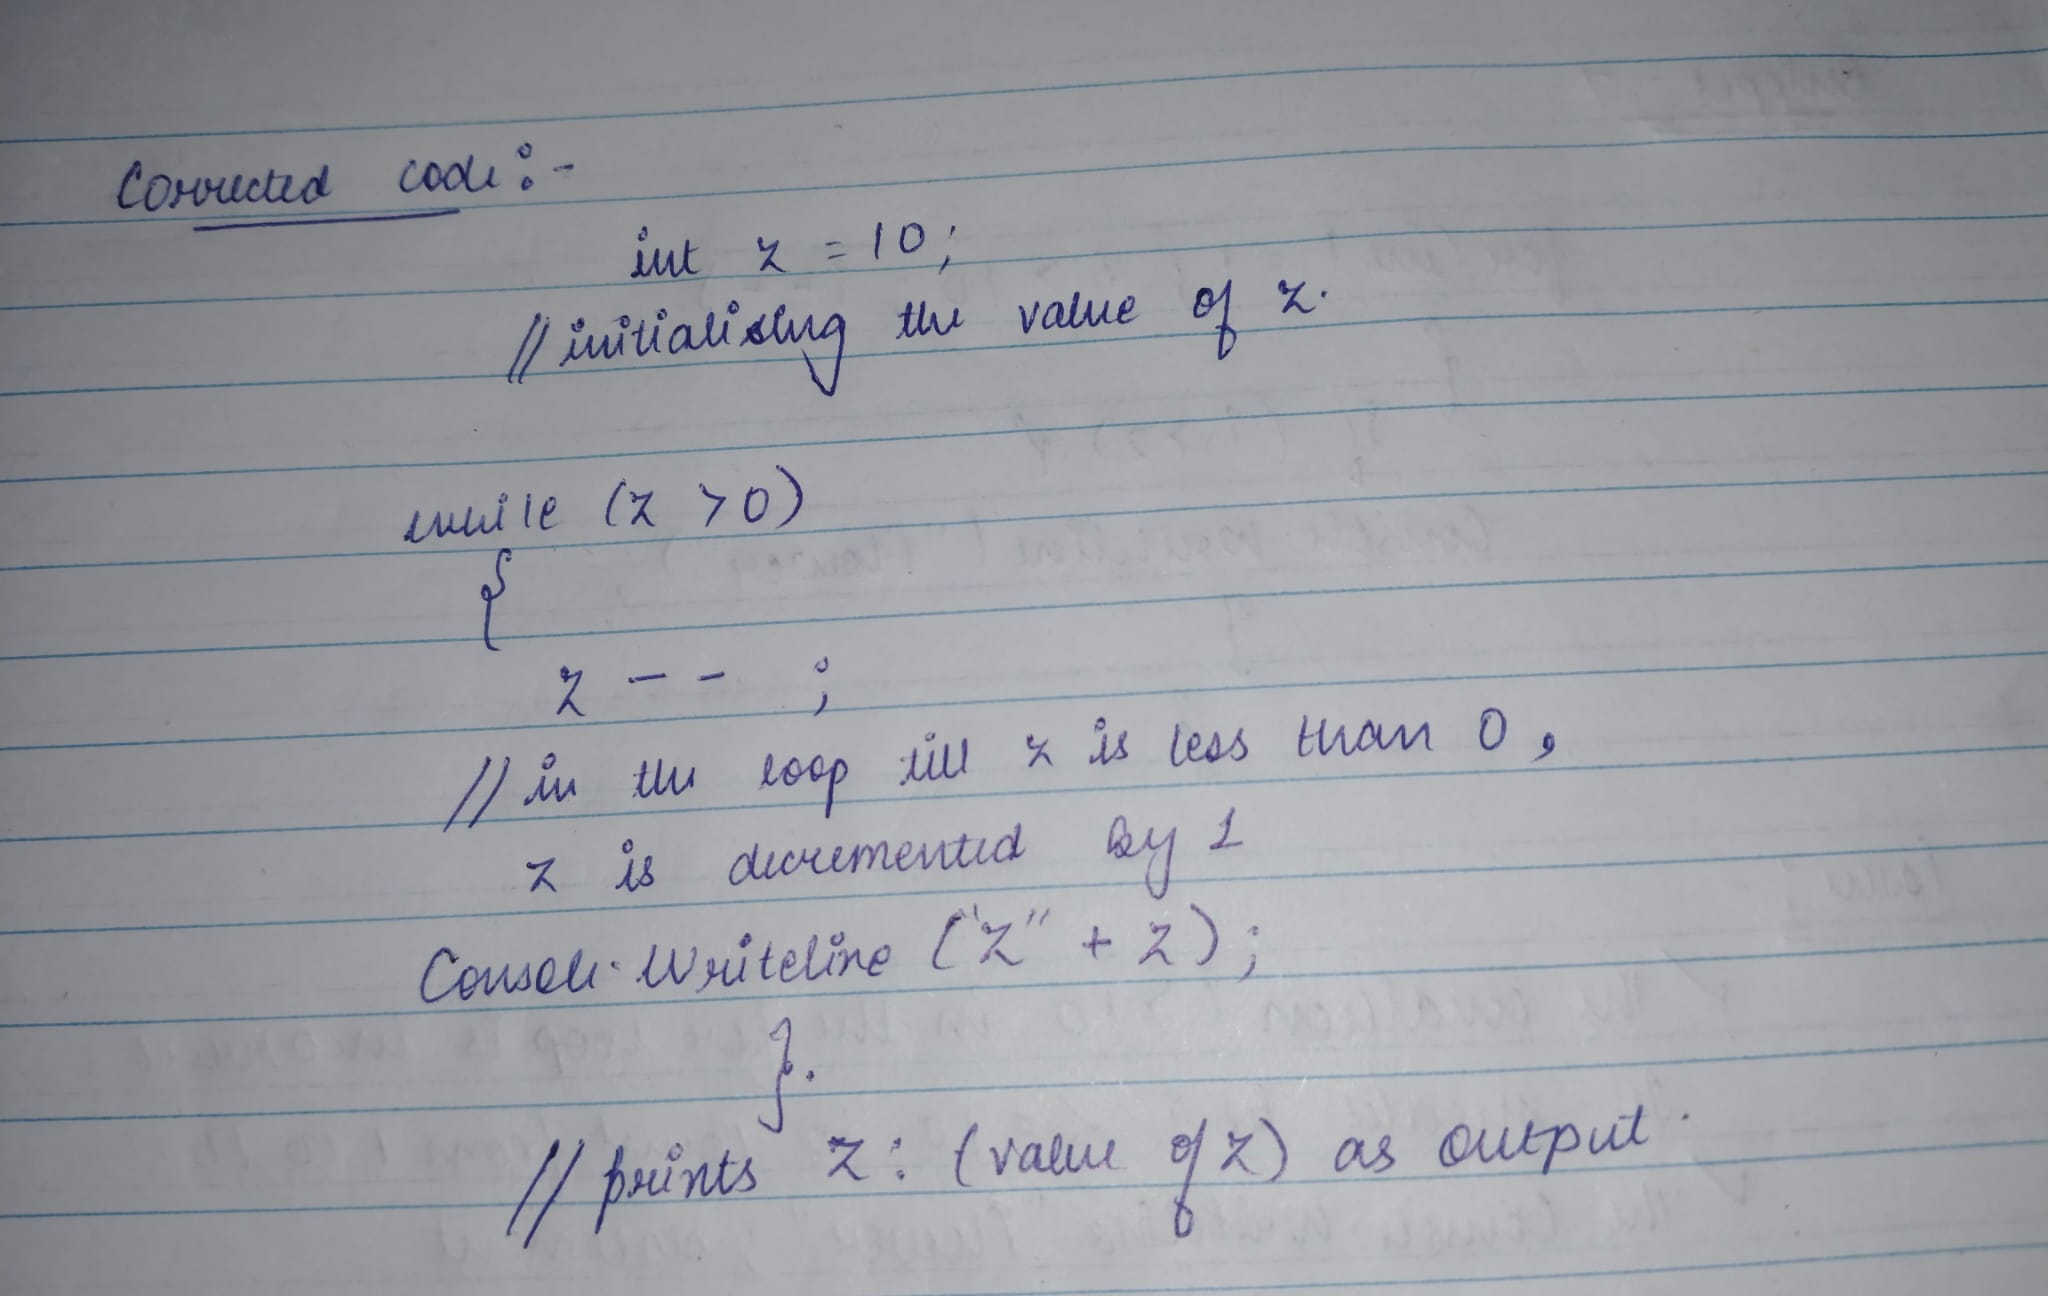 Corrected code:-
int z = 10;
// initialising the value of z.
while (z > 0)
{
z -- ;
// in the loop till z is less than 0,
z is decremented by 1
Console.Writeline ("z" + z);
}.
// prints z: (value of z) as output.